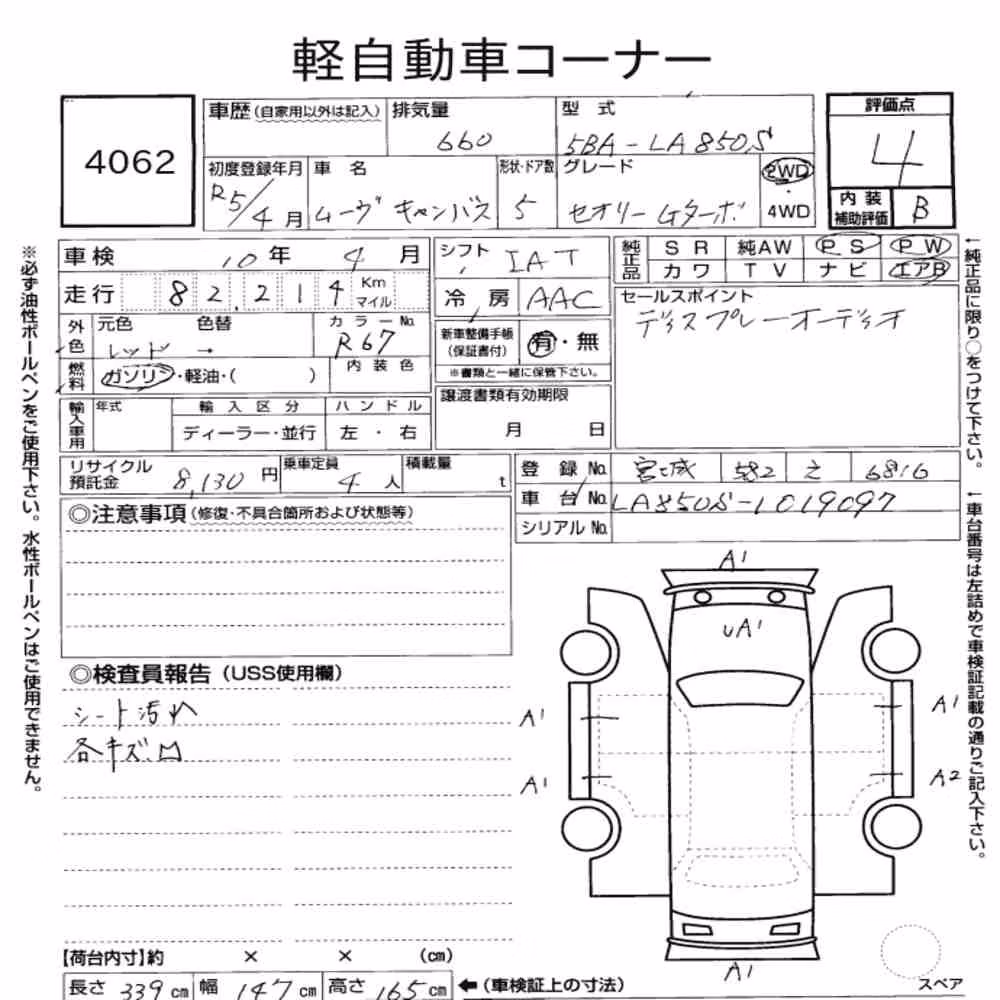 軽自動車コーナー
4062
車歴(自家用以外は記入) 排気量 型式 評価点
660 5BA-LA850S 4
初度登録年月 車名 形状・ドア数 グレード 2WD・4WD
R5/4月 ムーヴ キャンバス 5 セオリー Gターボ
内装補助評価 B
車検 10年 4月 シフト IAT
純正品 SR 純AW PS PW
カワ TV ナビ エアB
走行 82,214 Km マイル 冷房 AAC
セールスポイント
ディスプレーオーディオ
外色 元色 色替 カラーNo.
レッド → R67
新車整備手帳(保証書付) 有・無
※書類と一緒に保管下さい。
燃料 ガソリン・軽油・( ) 内装色
輸入車用 年式 輸入区分 ハンドル
ディーラー・並行 左・右
譲渡書類有効期限
月 日
リサイクル預託金 8,130円 乗車定員 4人 積載量 t
登録No. 宮城 582 え 6816
車台No. LA850S-1019097
シリアルNo.
◎注意事項(修復・不具合箇所および状態等)
◎検査員報告(USS使用欄)
シート汚れ
各キズ凹
A1
UA1
A1
A1
A1
A2
A1
スペア
【荷台内寸】約 × × (cm)
長さ 339cm 幅 147cm 高さ 165cm ←(車検証上の寸法)
※必ず油性ボールペンをご使用下さい。水性ボールペンはご使用できません。
←純正品に限り○をつけて下さい。
←車台番号は左詰めで車検証記載の通りご記入下さい。